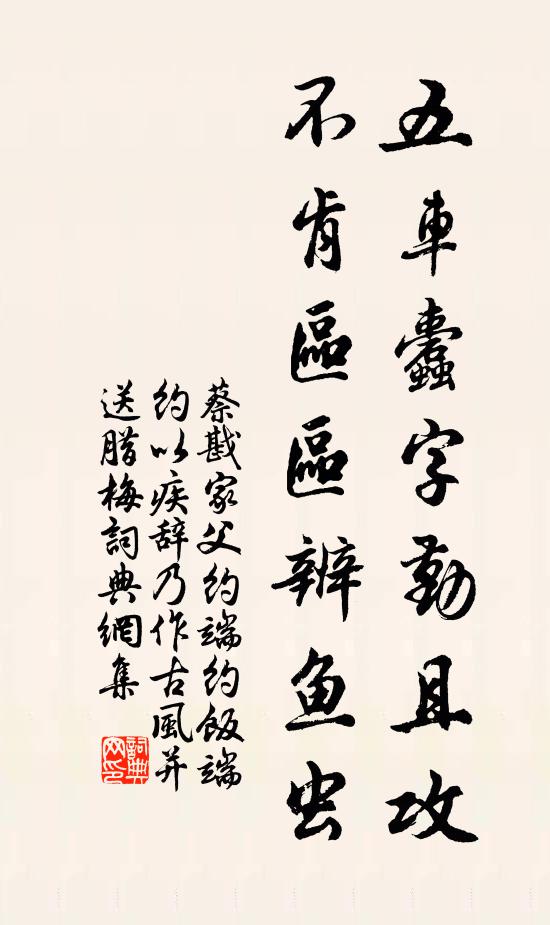 五車蠹字勤且攻
不肯區區辨魚虫
蔡戡家父約端約飯端
約以疾辞乃作古風并
送腊梅詞典網集
詞典網印